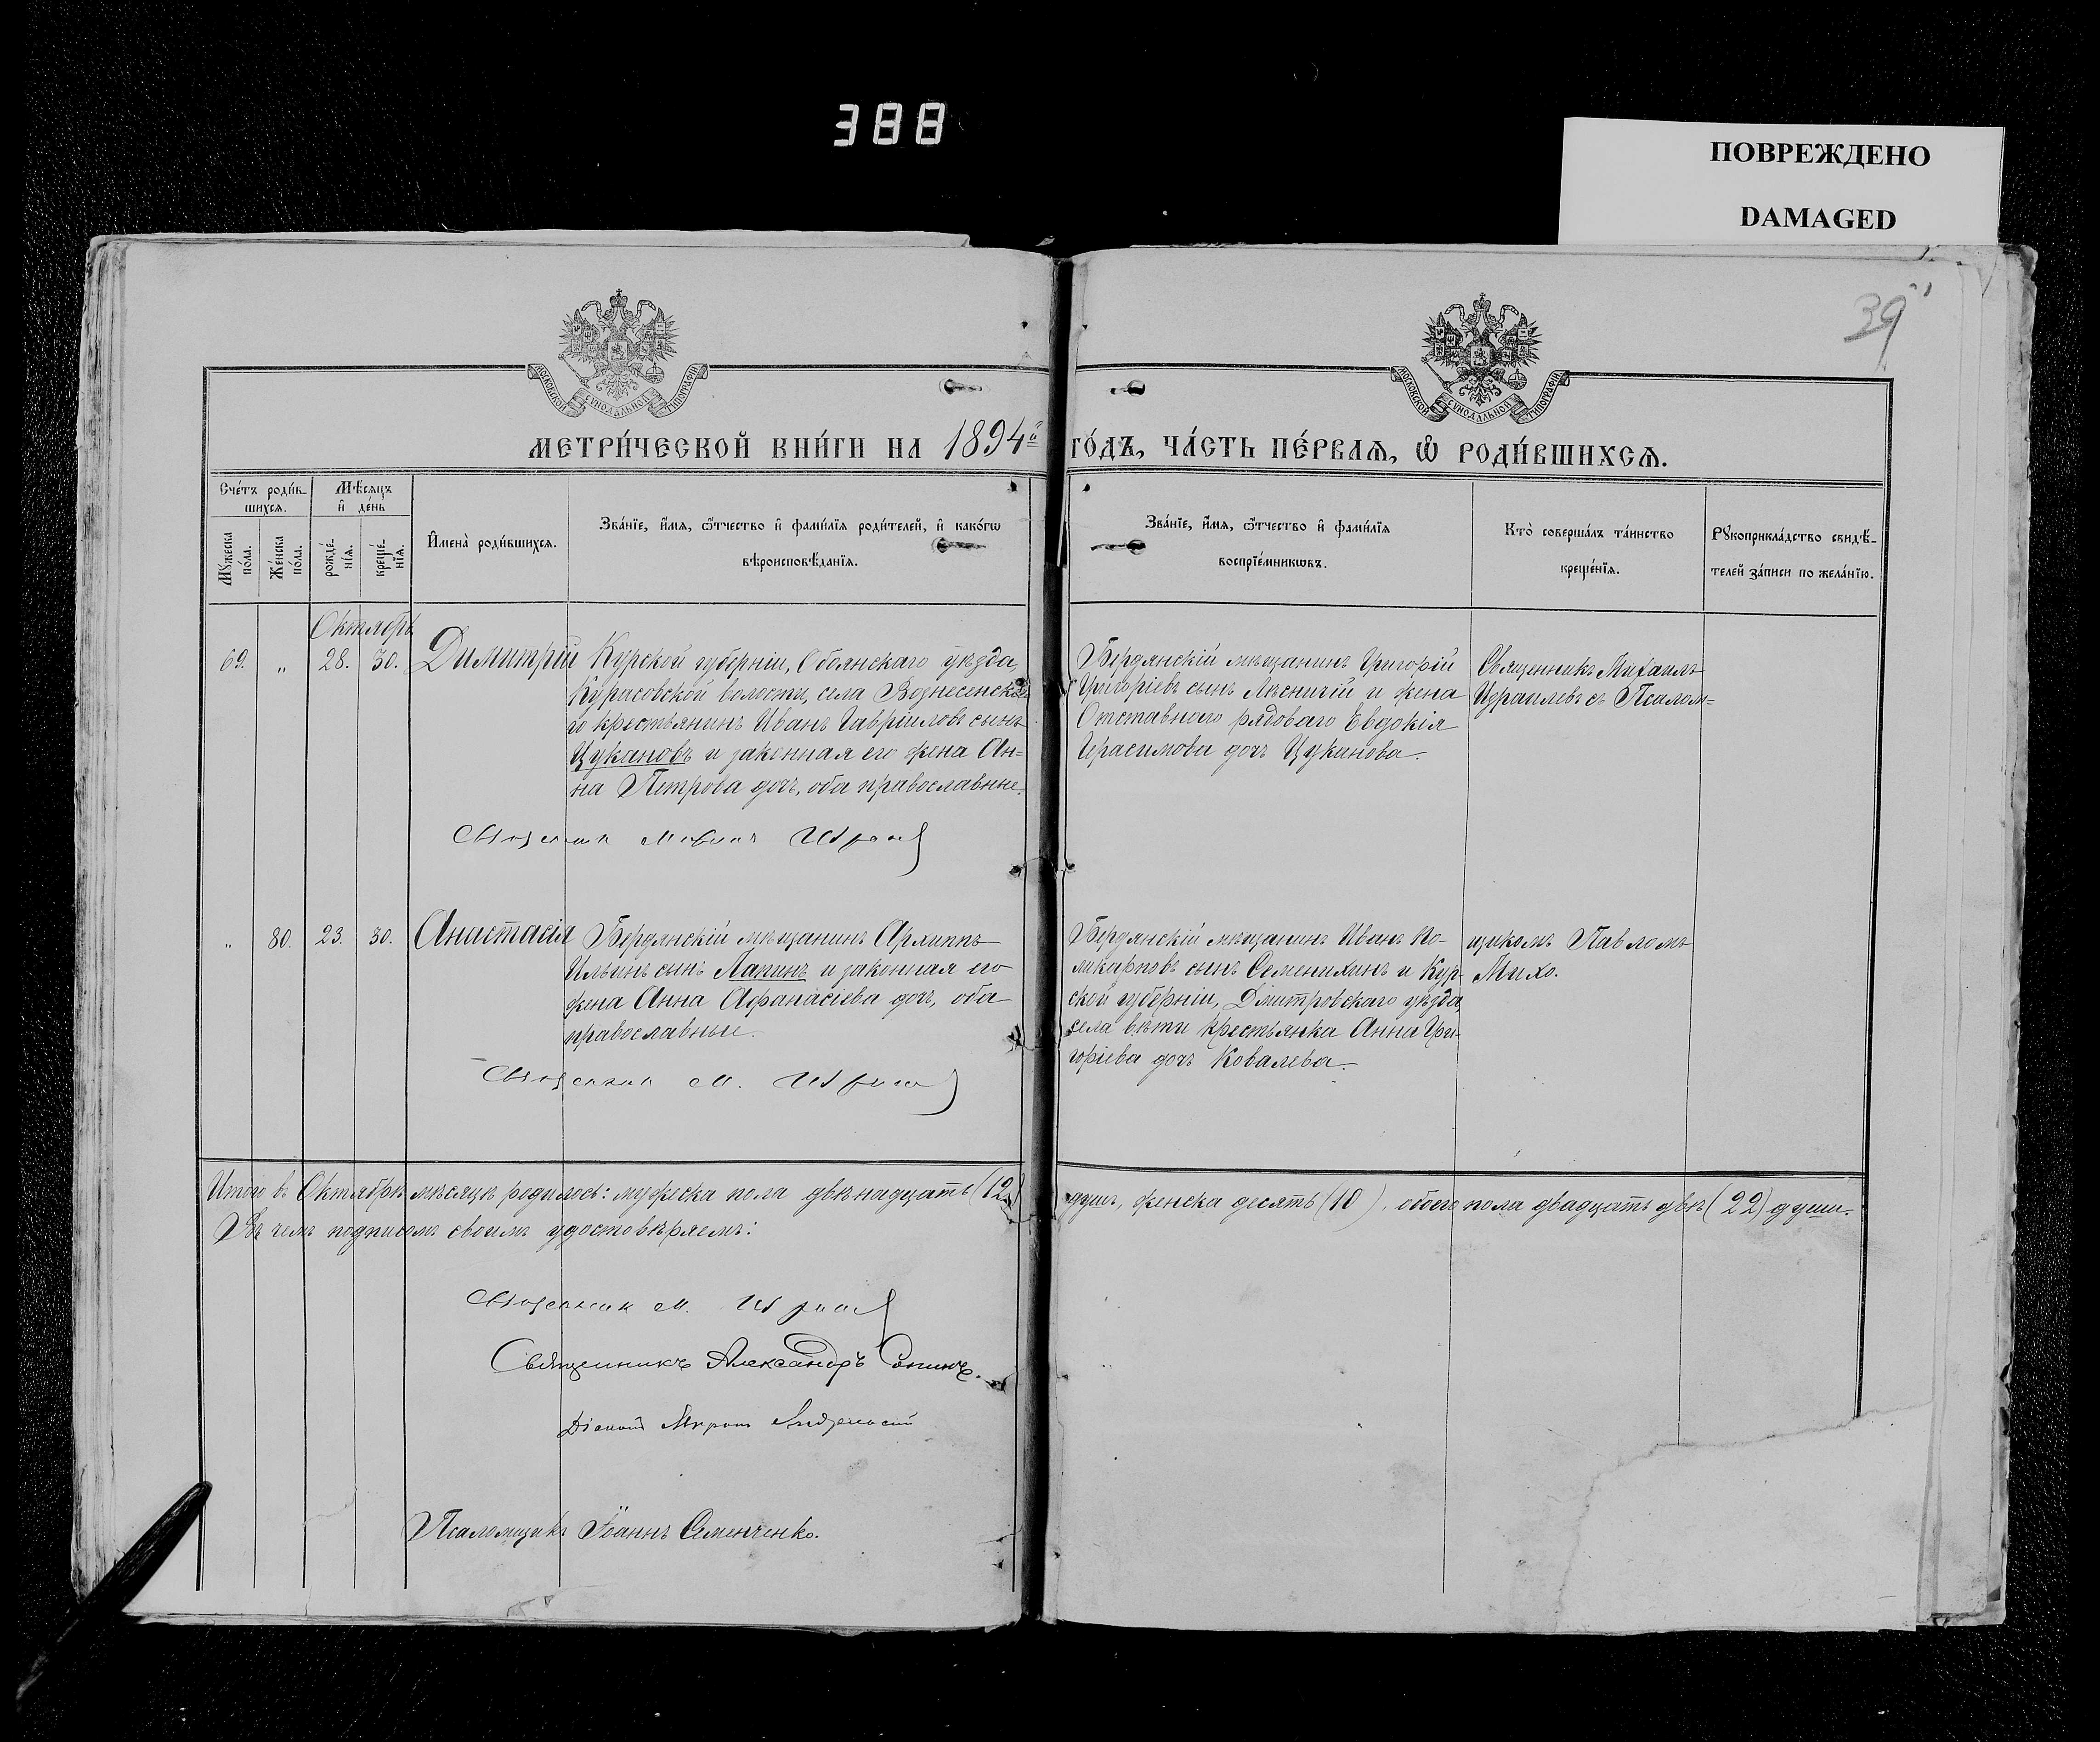 388
ПОВРЕЖДЕНО
DAMAGED
39
МОСКОВСКОЙ СУНОДАЛЬНОЙ ТИПОГРАФІИ
МОСКОВСКОЙ СУНОДАЛЬНОЙ ТИПОГРАФІИ
МЕТРИ́ЧЕСКОЙ КНИ́ГИ НА 1894й ГО́ДЪ, ЧА́СТЬ ПЕ́РВАѦ, Ѡ РОДИ́ВШИХСѦ.
Сче́тъ роди́в-
шихсѧ.
Мѣ́сѧцъ
и҆ де́нь
Мꙋ́жеска
по́ла.
Же́нска
по́ла.
рожде́-
нїѧ.
креще́-
нїѧ.
И҆мена̀ роди́вшихсѧ.
Зва́нїе, и҆́мѧ, ѻ҆́тчество и҆ фами́лїѧ роди́телей, и҆ како́гѡ
вѣроисповѣ́данїѧ.
Зва́нїе, и҆́мѧ, ѻ҆́тчество и҆ фами́лїѧ
воспрїе́мникѡвъ.
Кто̀ соверша́лъ та́инство
креще́нїѧ.
Рꙋкоприкла́дство свидѣ́-
телей за́писи по жела́нїю.
Октябрь
69. „ 28. 30. Димитрій
Курской губерніи, Обоянскаго уѣзда,
Курасовской волости, села Вознесенска-
го крестьянинъ Иванъ Гавріиловъ сынъ
Цукановъ и законная его жена Ан=
на Петрова дочь, оба православные.
Бердянскій мѣщанинъ Григорій
Григоріевъ сынъ Лѣсничій и жена
Отставного рядоваго Евдокія
Герасимова дочь Цуканова.
Священникъ Михаилъ
Израилевъ съ Псалом=
Священник Михаил
„ 80. 23. 30. Анастасія
Бердянскій мѣщанинъ Архипъ
Ильинъ сынъ Лапинъ и законная его
жена Анна Афанасіева дочь, оба
православные.
Бердянскій мѣщанинъ Иванъ По-
ликарповъ сынъ Семенихинъ и Кур-
ской губерніи, Дмитровскаго уѣзда,
села крестьянка Анна Гри-
горіева дочь Ковалева.
щикомъ Павломъ
Михо.
Священник М.
Итого въ Октябрѣ мѣсяцѣ родилось: мужеска пола двѣнадцать (12) душъ, женска десять (10), обоего пола двадцать двѣ (22) души.
Въ чемъ подписомъ своимъ удостовѣряемъ:
Священник М.
Священникъ Александръ Сонинъ.
Діаконъ
Псаломщикъ Іоаннъ Семенченко.